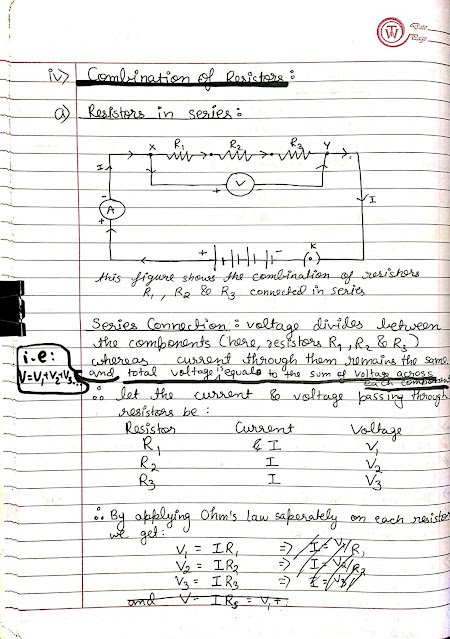 Date
Page
iv) Combination of Resistors :
a) Resistors in series :
X R₁ R₂ R₃ Y
I
+ V
-
A
+
I
+ - K
(.)
this figure shows the combination of resistors
R₁, R₂ & R₃ connected in series
Series Connection : voltage divides between
the components (here, resistors R₁, R₂ & R₃)
whereas current through them remains the same
i.e:
V=V₁+V₂+V₃...
and total voltage is equals to the sum of voltage across
each component
∴ let the current & voltage passing through
resistors be :
Resistor Current Voltage
R₁ I V₁
R₂ I V₂
R₃ I V₃
∴ By applying Ohm's law saperately on each resistor
we get :
V₁ = IR₁ => I = V₁/R₁
V₂ = IR₂ => I = V₂/R₂
V₃ = IR₃ => I = V₃/
and V = IRs = V₁ +